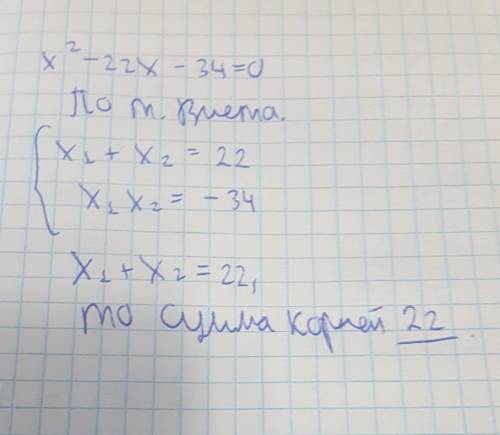 x² - 22x - 34 = 0
По т. Виета.
x₁ + x₂ = 22
x₁ x₂ = - 34
x₁ + x₂ = 22,
то сумма корней 22.